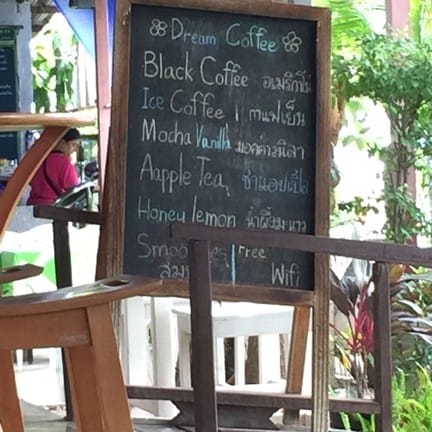 Dream Coffee
Black Coffee อเมริกาโน่
Ice Coffee | กาแฟเย็น
Mocha Vanilla มอคค่าวนิลา
Aapple Tea, ชาแอปเปิ้ล
Honey lemon น้ำผึ้งมะนาว
Free
Wifi